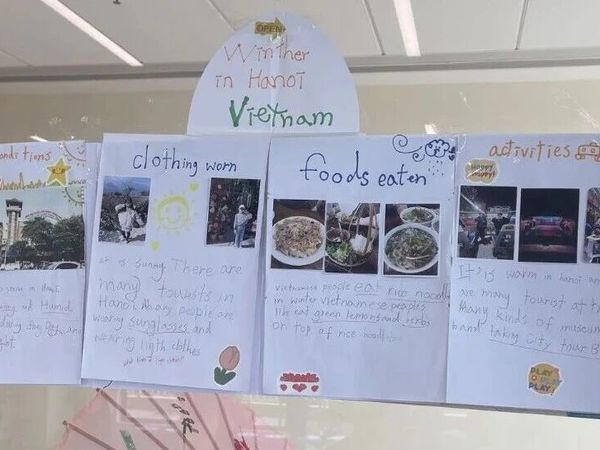 OPEN
Winther
in Hanoi
Vietnam
onditions
Humid
clothing worn
It is sunny. There are
many tourists in
Hanoi. Many people are
wearing sunglasses and
wearing ligth clothes
foods eaten
vietnamese people eat rice noodl
in winter vietnamese peoples
like eat green lemons and herbs
on top of rice noodles
activities
HAPPY
HAPPY!
It is warm in hanoi an
are many tourist at th
Many kinds of museum
and taking city tour B
PLAY
PLAY!